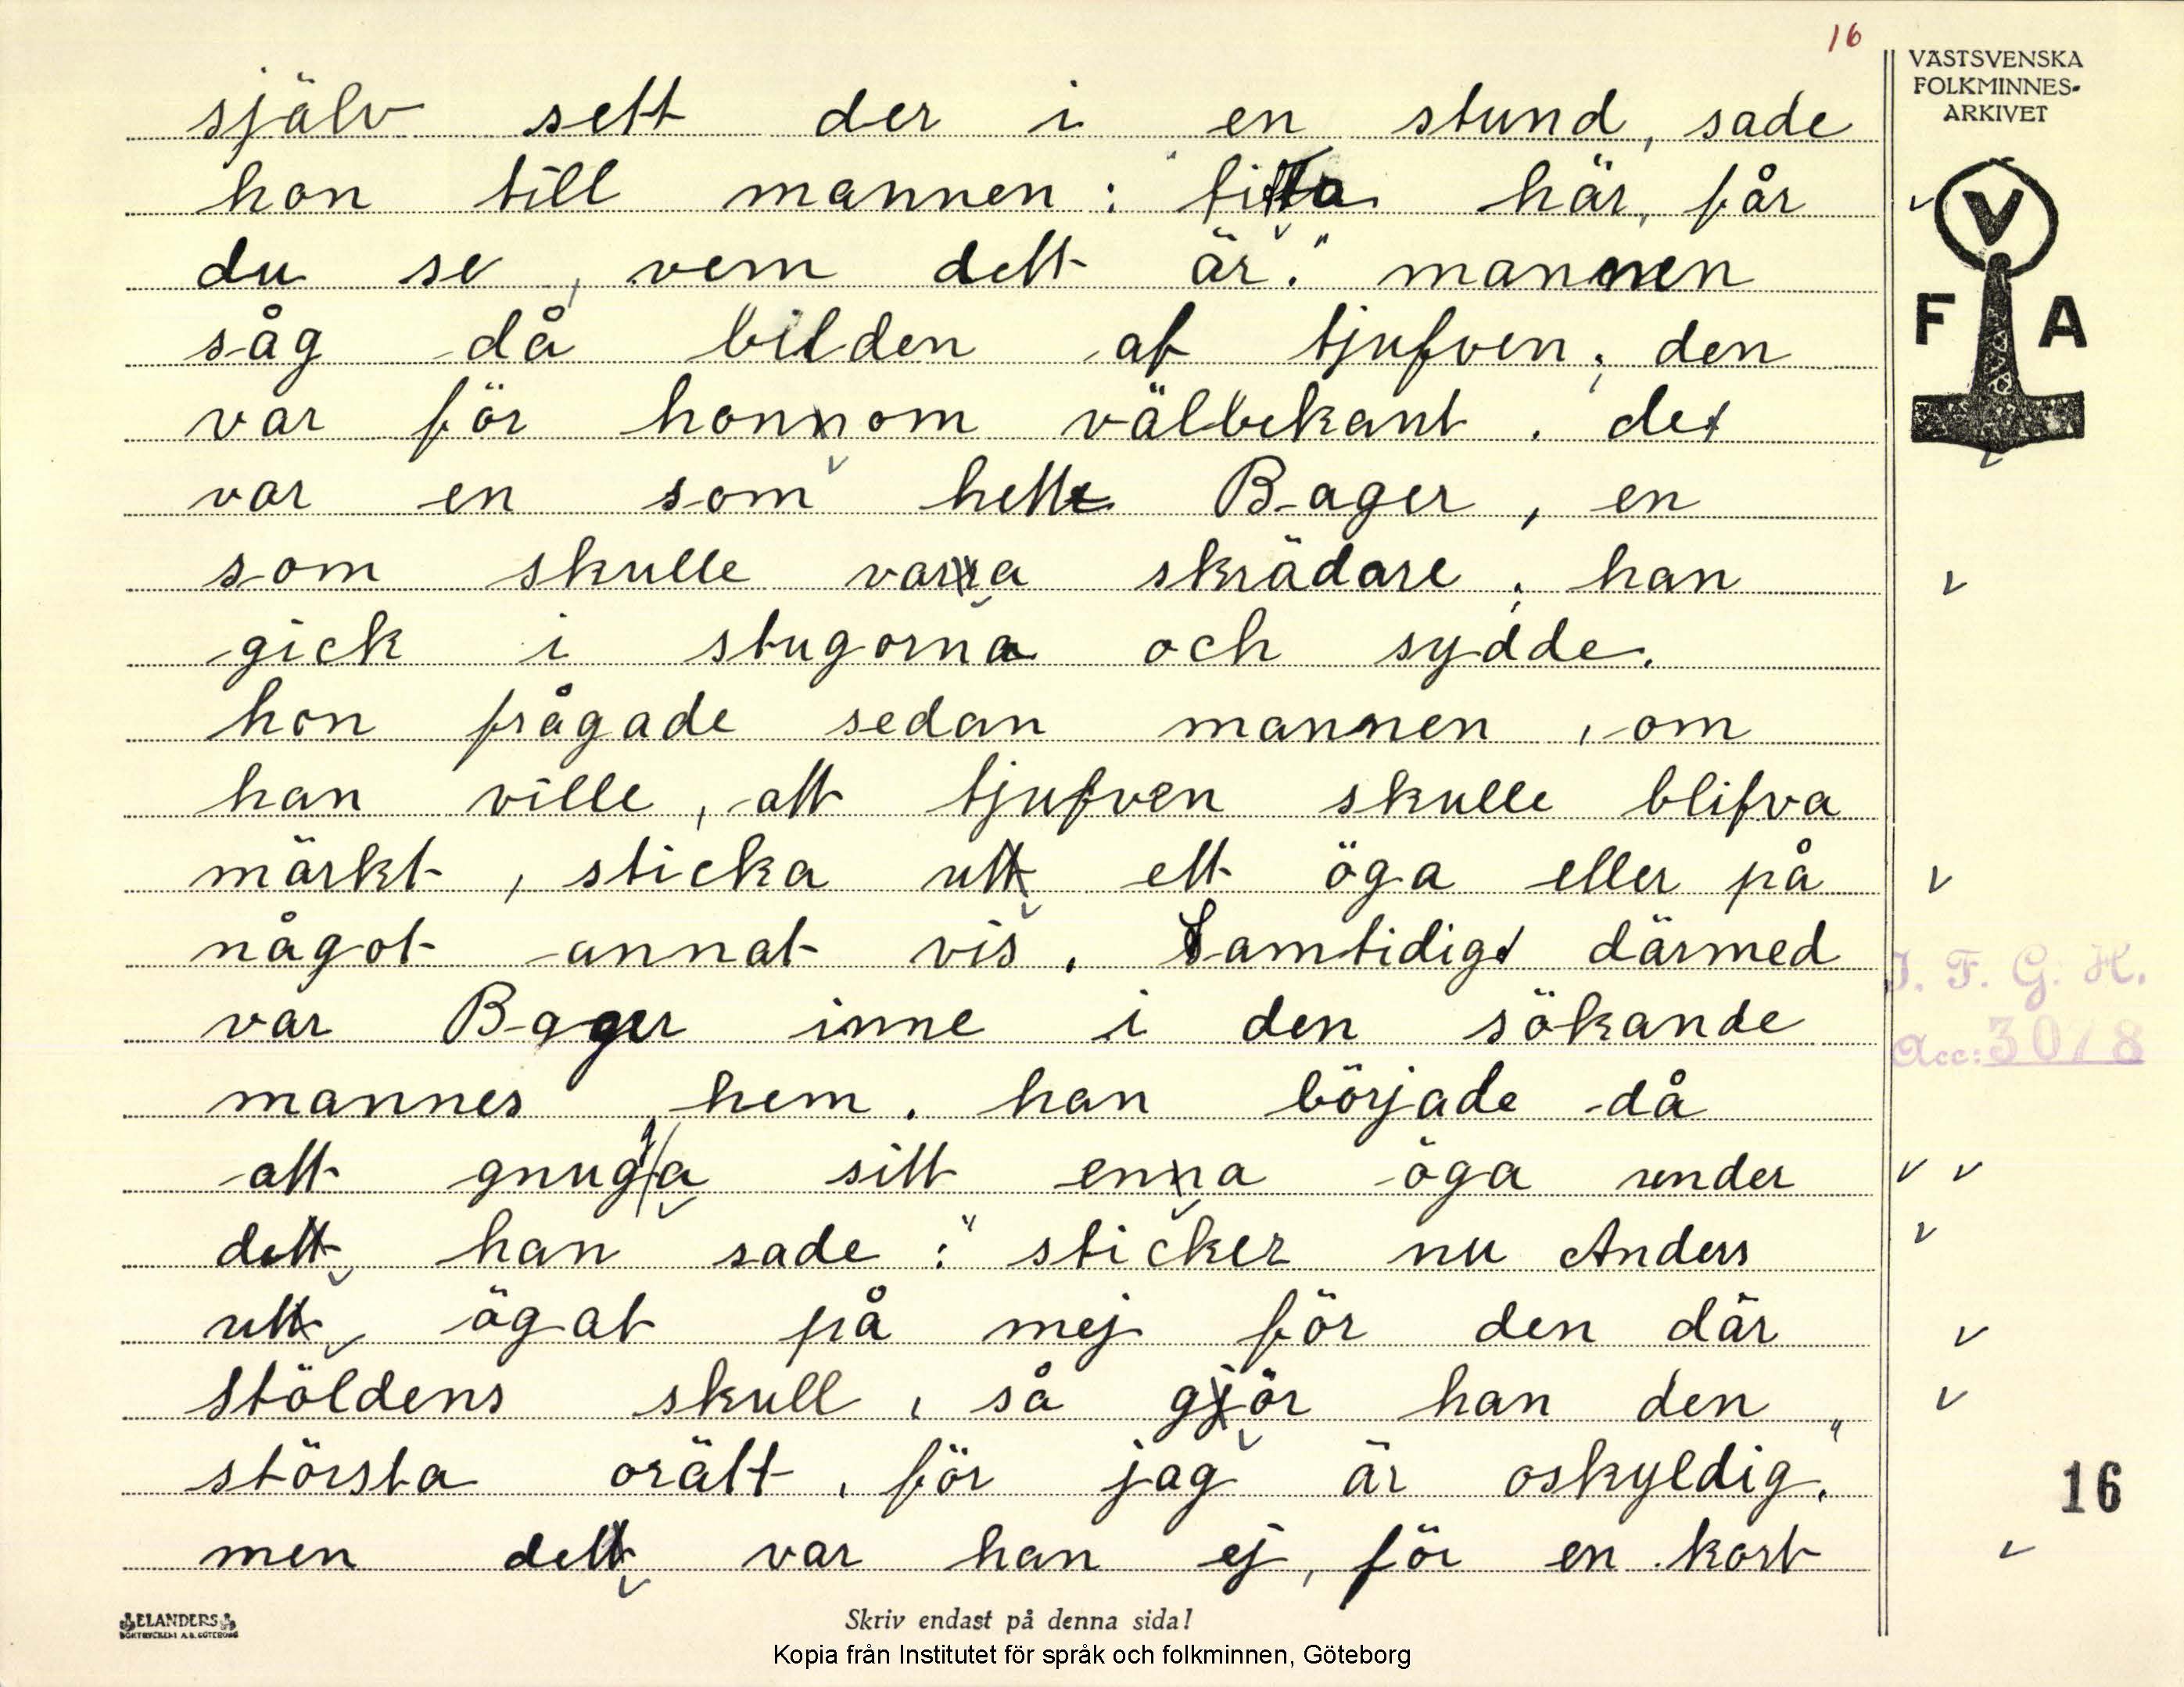 16
VÄSTSVENSKA
FOLKMINNES-
ARKIVET
själv sett der i en stund, sade
hon till mannen: "titta här, får
du se, vem dett är." mannen
såg då bilden af tjufven; den
var för honom välbekant. det
var en som hette Bager, en
som skulle vara skrädare; han
gick i stugorna och sydde.
hon frågade sedan mannen, om
han ville, att tjufven skulle blifva
märkt, sticka ut ett öga eller på
något annat vis. Samtidigt därmed
var Bager inne i den sökande
mannes hem. han började då
att gnugga sitt ena öga under
det han sade: "sticker nu Anders
ut ögat på mej för den där
stöldens skull, så gör han den
största orätt, för jag är oskyldig."
men det var han ej, för en kort
V
F A
I. F. G. H.
Acc: 3018
16
ELANDERS
BOKTRYCKERI A.B. GÖTEBORG
Skriv endast på denna sida!
Kopia från Institutet för språk och folkminnen, Göteborg